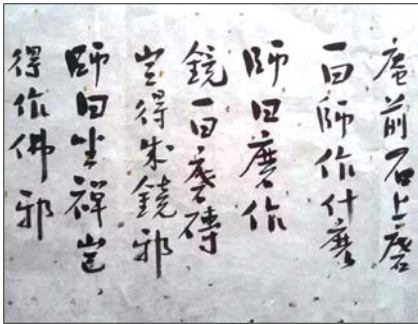 庵前石上磨
一曰師作什麼
師曰磨作
鏡一曰磨磚
豈得成鏡邪
師曰坐禪豈
得作佛邪